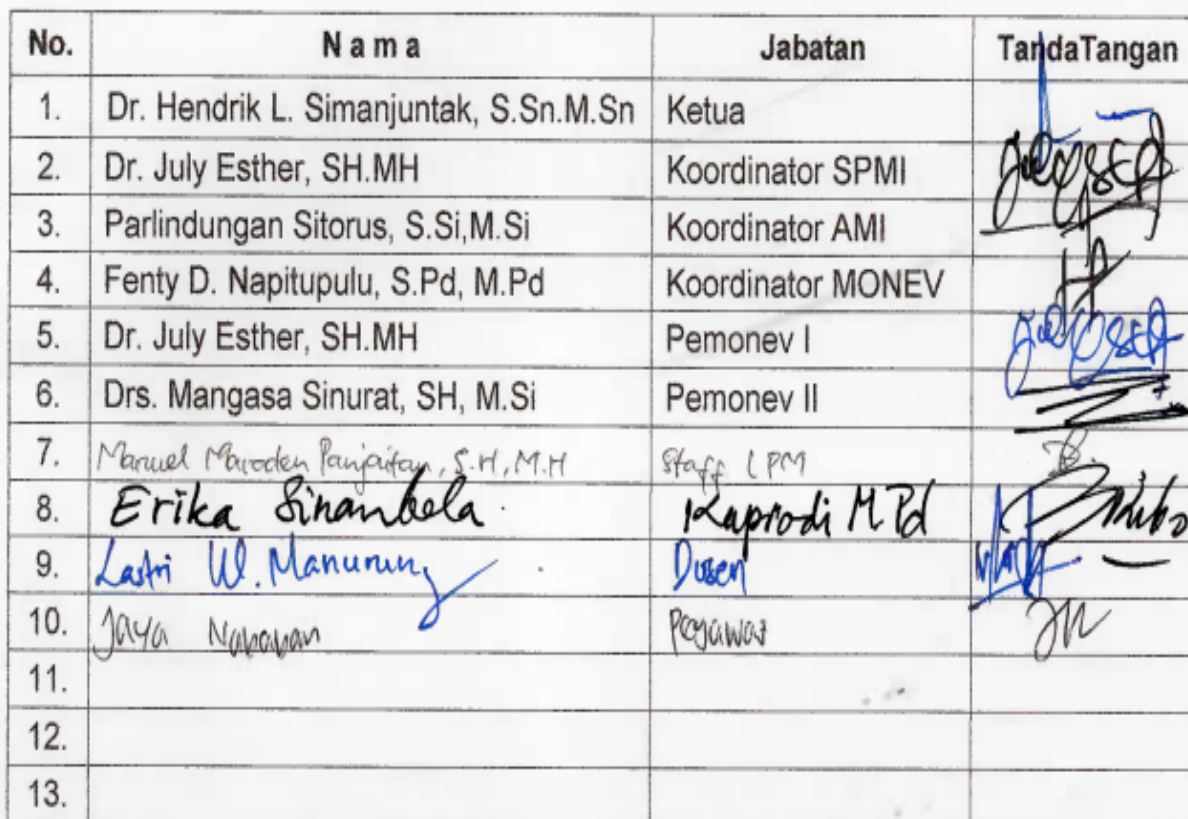 No. Nama Jabatan TandaTangan
1. Dr. Hendrik L. Simanjuntak, S.Sn.M.Sn Ketua
2. Dr. July Esther, SH.MH Koordinator SPMI
3. Parlindungan Sitorus, S.Si,M.Si Koordinator AMI
4. Fenty D. Napitupulu, S.Pd, M.Pd Koordinator MONEV
5. Dr. July Esther, SH.MH Pemonev I
6. Drs. Mangasa Sinurat, SH, M.Si Pemonev II
7. Manuel Maroden Panjaitan, S.H, M.H Staff LPM
8. Erika Sinambela Kaprodi M.Pd
9. Lastri W. Manurung Dosen
10. Jaya Nababan Pegawai
11.
12.
13.